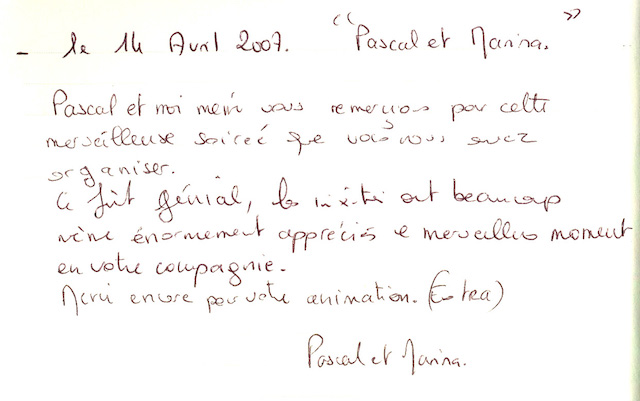 - le 14 Avril 2007. "Pascal et Marina."
Pascal et moi même vous remercions pour cette
merveilleuse soirée que vous nous avez
organiser.
Ce fût génial, les invités ont beaucoup
même énormement appréciés ce merveilleux moment
en votre compagnie.
Merci encore pour votre animation. (Extra)
Pascal et Marina.